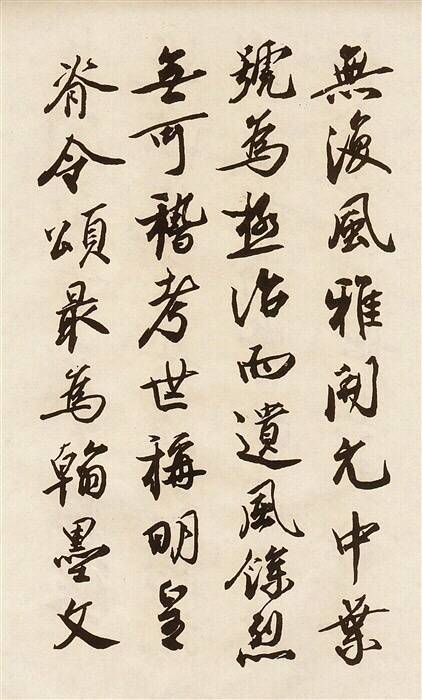 無復風雅開元中業
號為極治而遺風餘烈
無可稽考世稱明皇
脊令頌最為翰墨文